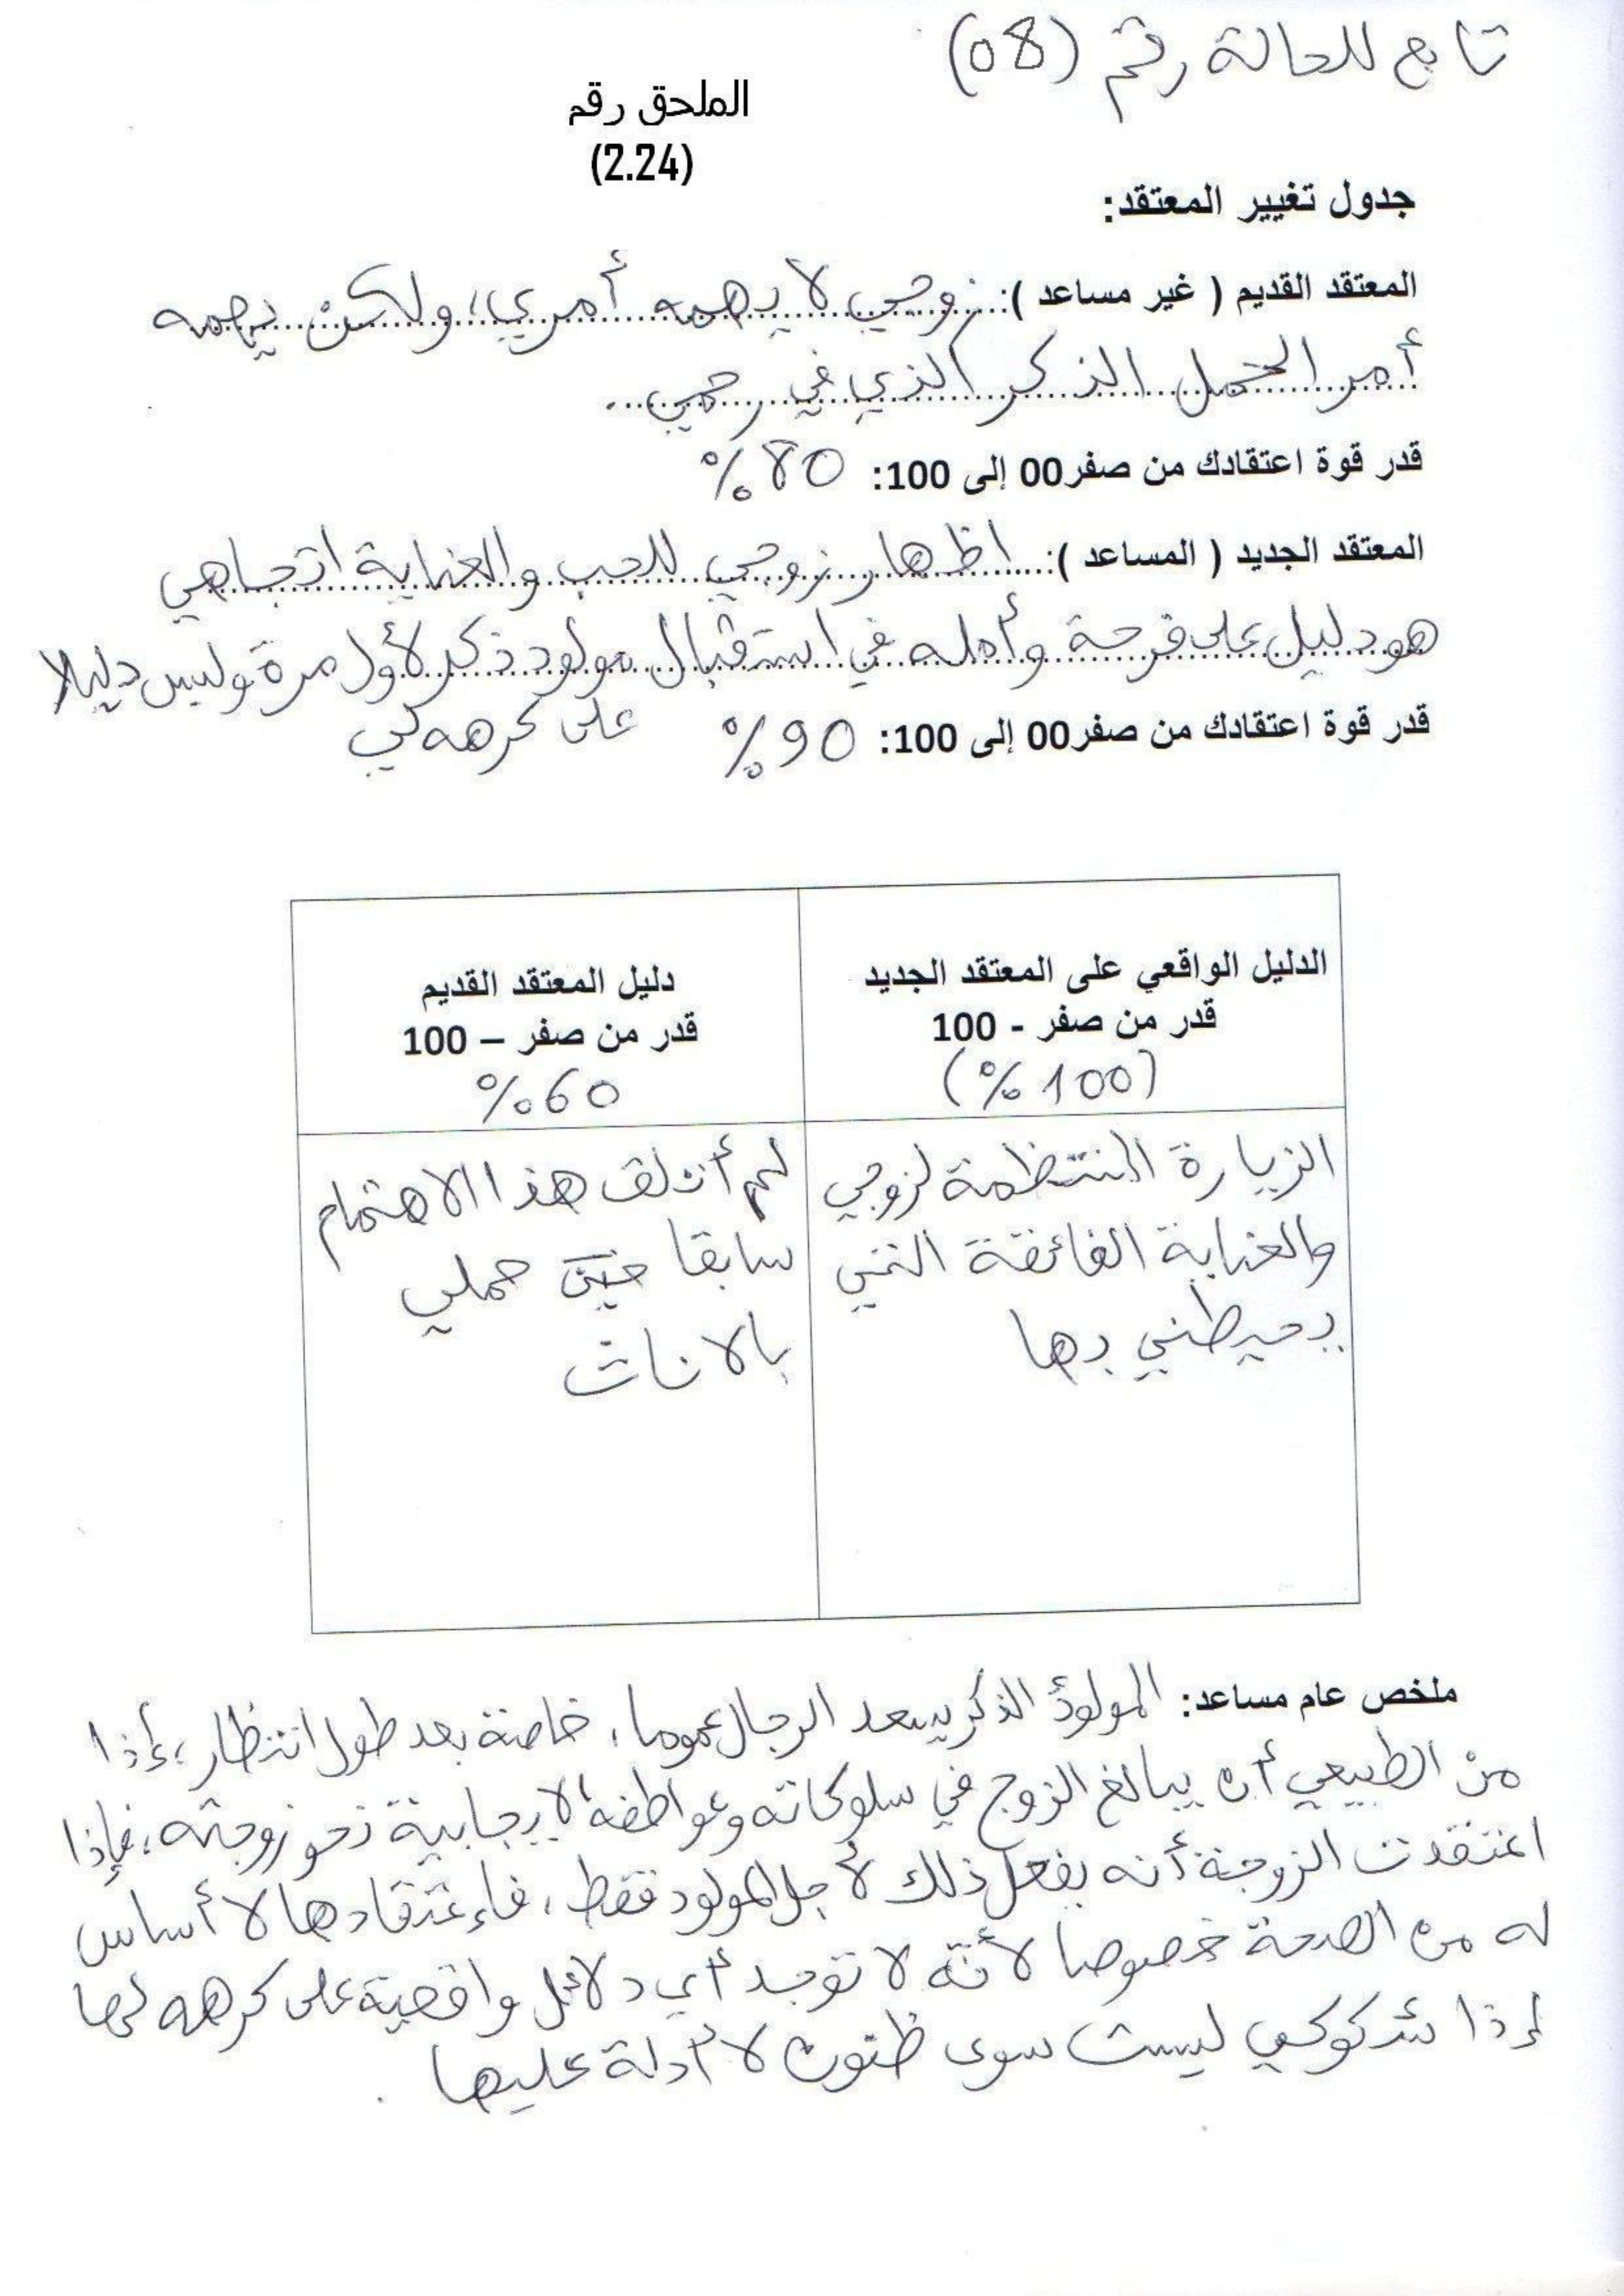 تابع للحالة رقم (08)
الملحق رقم
(2.24)
جدول تغيير المعتقد:
المعتقد القديم ( غير مساعد ): زوجي لا يهمه أمري، ولكن يهمه
أمر الحمل الذكر الذي في رحمي.
قدر قوة اعتقادك من صفر00 إلى 100: 80%
المعتقد الجديد ( المساعد ): اظهار زوجي للحب والعناية اتجاهي
هو دليل على فرحة وأمله في استقبال مولود ذكر لأول مرة وليس دليلا
على كرهه لي
قدر قوة اعتقادك من صفر00 إلى 100: 90%
الدليل الواقعي على المعتقد الجديد
قدر من صفر - 100
(100%)
الزيارة المنتظمة لزوجي
والعناية الفائقة التي
يحيطني بها
دليل المعتقد القديم
قدر من صفر – 100
60%
لم أتلق هذا الاهتمام
سابقا حين حملي
بالاناث
ملخص عام مساعد: المولود الذكر يسعد الرجال عموما، خاصة بعد طول انتظار، إذا
من الطبيعي أن يبالغ الزوج في سلوكاته وعواطفه الايجابية نحو زوجته، فإذا
اعتقدت الزوجة أنه يفعل ذلك لأجل المولود فقط، فاعتقادها لا أساس
له من الصحة خصوصا لأنه لا توجد أي دلائل واقعية على كرهه لها
إذا شكوكي ليست سوى ظنون لا أدلة عليها.